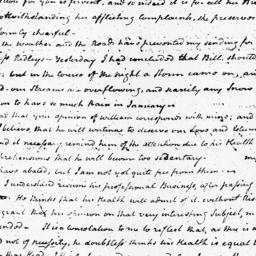 tion for you is fervent, and so indeed it is for all her
notwithstanding her afflicting complaints, she preserves
formly chearful—
the weather and the Roads have prevented my sending for
iss Ridleys— Yesterday I had concluded that Bill should
; but in the course of the night a storm came on, an
d— our streams are overflowing, and scarcely any Snow
on to have so much Rain in January—
and that your opinion of william corresponds with mine; and
believe, that he will continue to deserve our Love and Esteem
nd it necessary remind him of the attention due to his Health
prehensions that he will become too sedentary. my
have abated; but I am not yet quite free from them—
I understand resume his professional Business, after passing
He thinks that his Health will admit of it. without his
grant that his opinion on that very interesting Subject, m
unded— It is a consolation to me to reflect that, as this is a
nd not of necessity, he doubtless thinks his Health is equal t